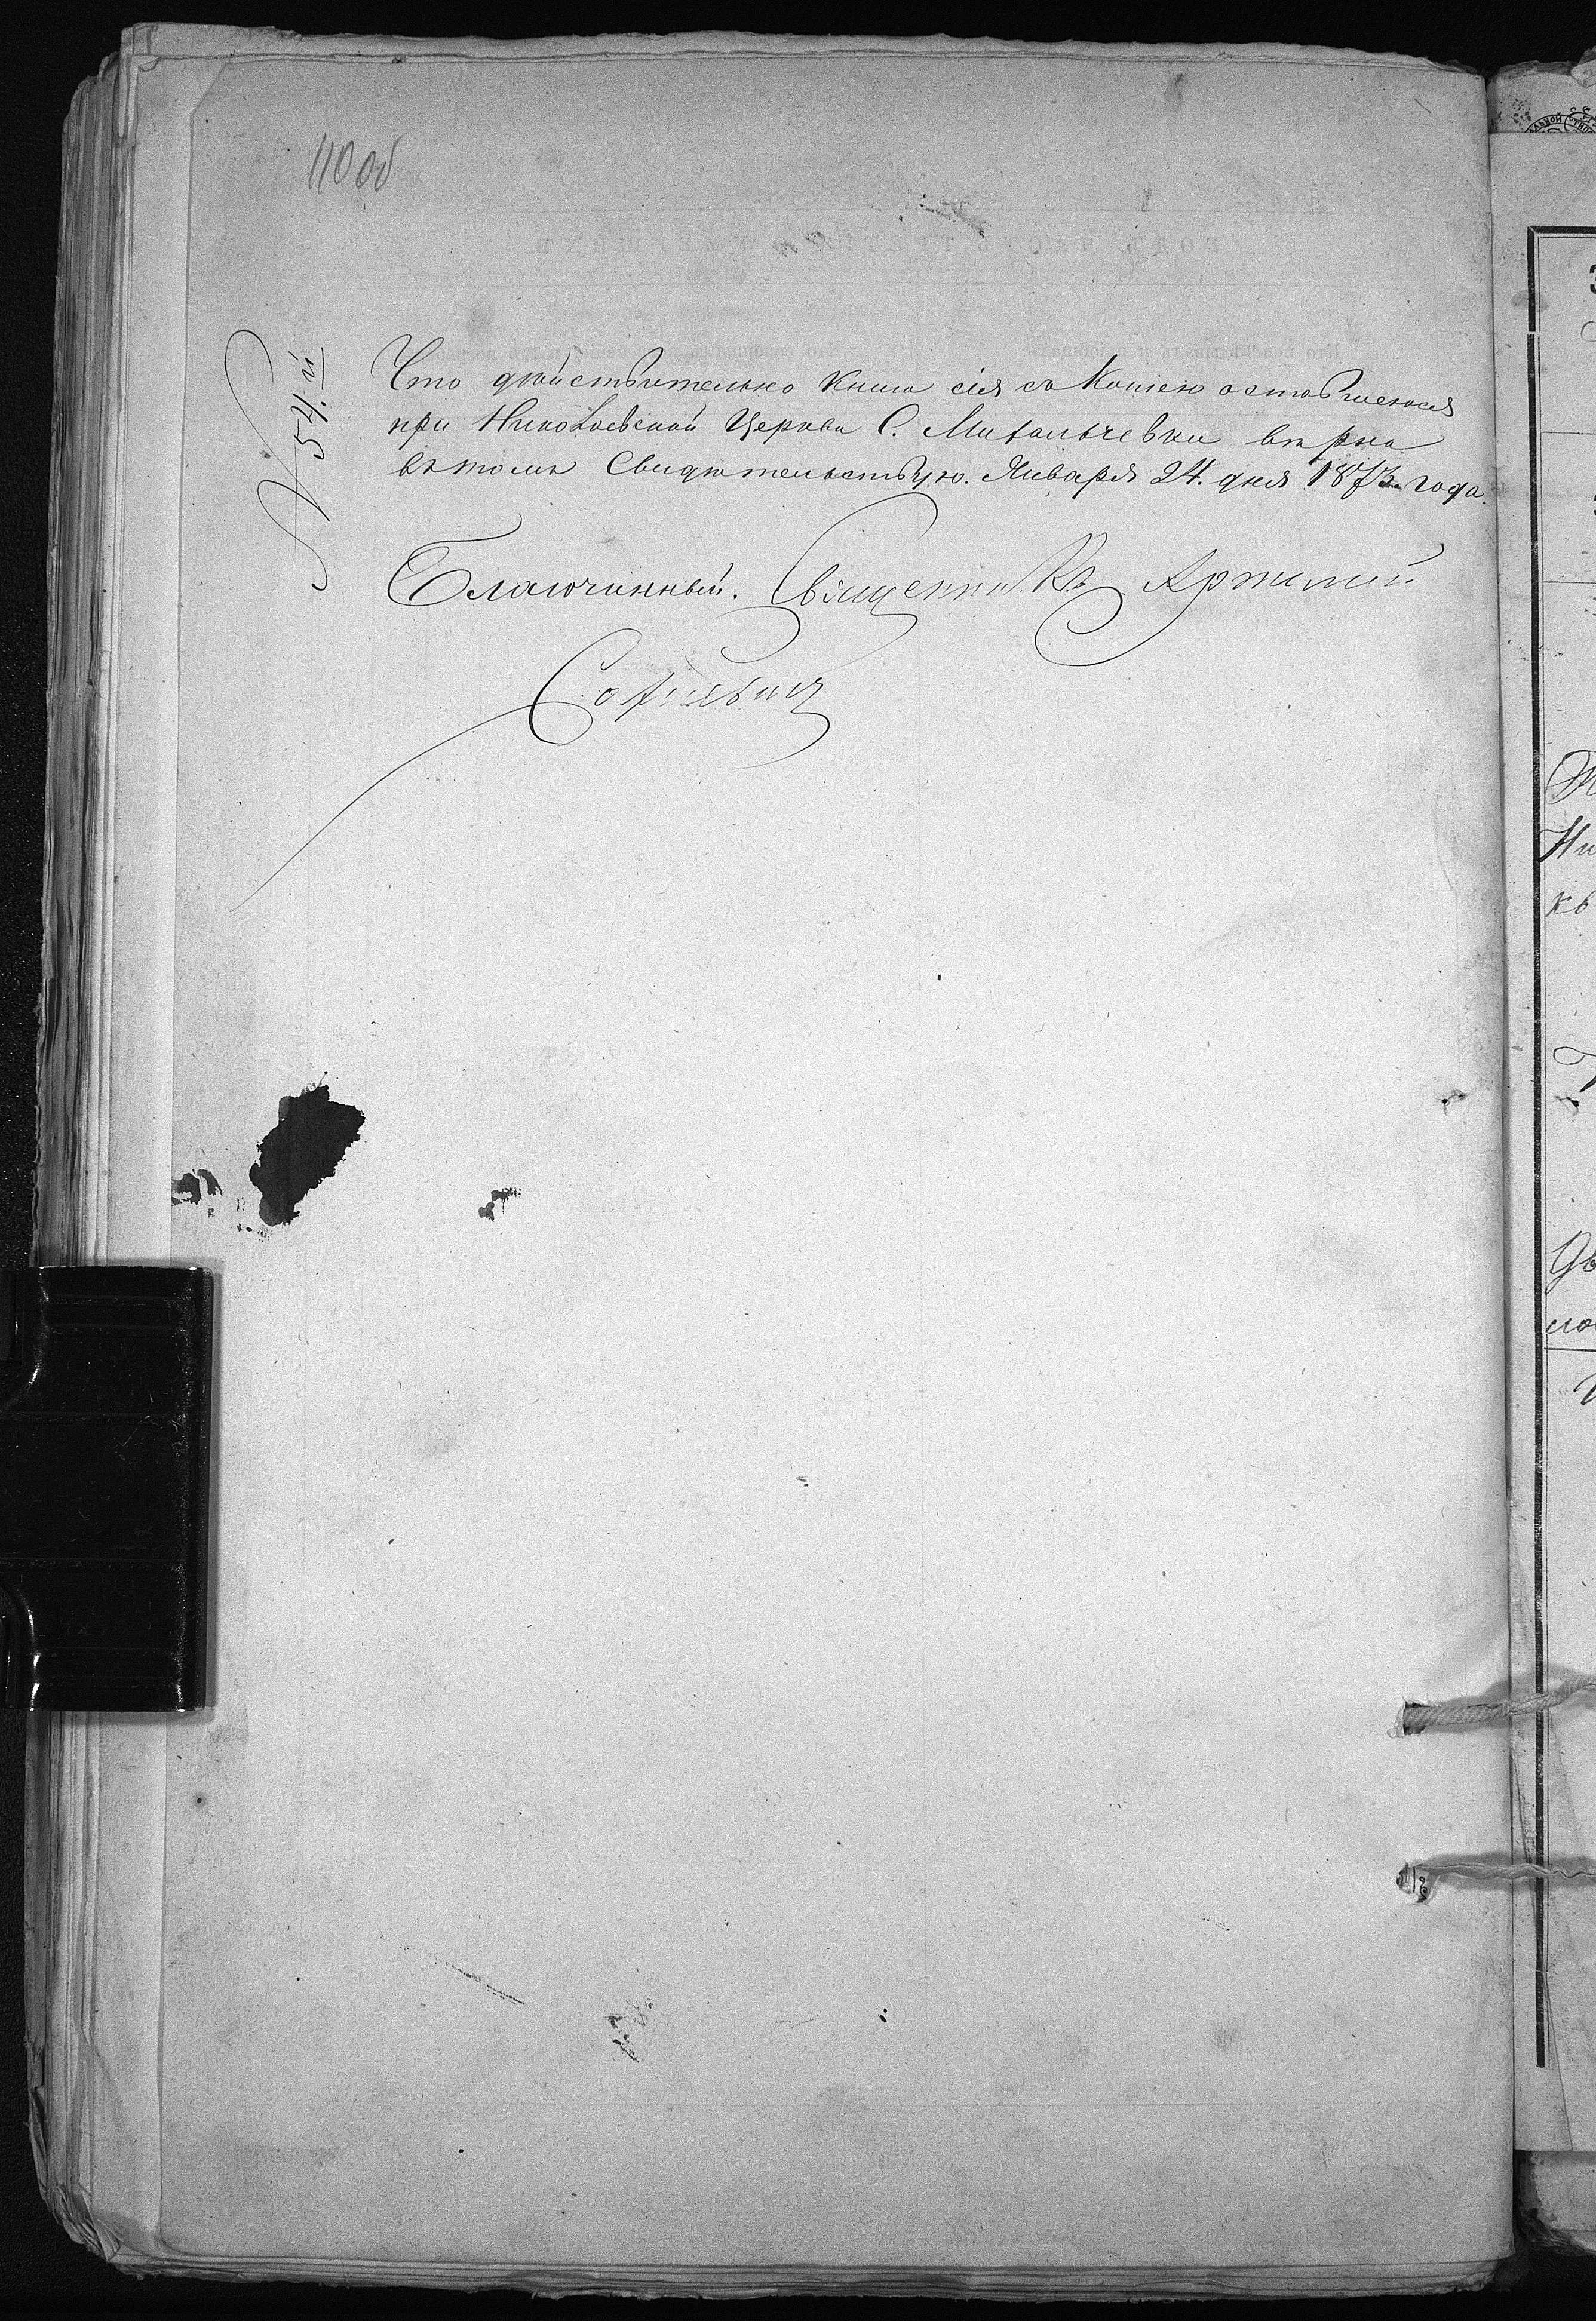 110 об
№ 54.й
Что дѣйствительно Книга сія съ Копіею оставшеюся
при Николаевской Церкви С. Михальчевки вѣрна
въ томъ Свидѣтельствую. Января 24. дня 1873 года.
Благочинный. Священникъ Артемій